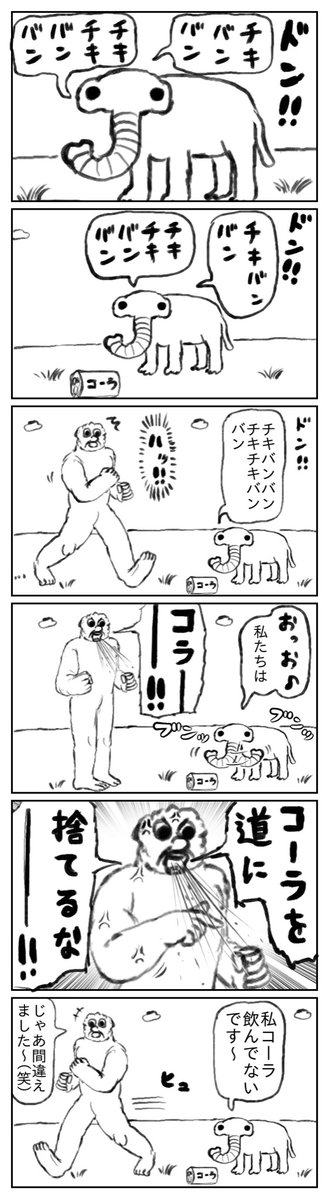 ドン!!
チキ
チキ
バン
バン
チキ
チキ
バン
バン
ドン!!
チキバン
バン
チキ
チキ
バン
バン
コーラ
ドン!!
チキバンバン
チキチキバン
バン
ハッ!!!
コーラ
おっお♪
私たちは
コラーーー!!
ブンッ
ブンッ
コーラ
コーラを
道に
捨てるなーーー!!
私コーラ
飲んでない
です〜
ヒュ
じゃあ間違え
ました〜(笑)
コーラ